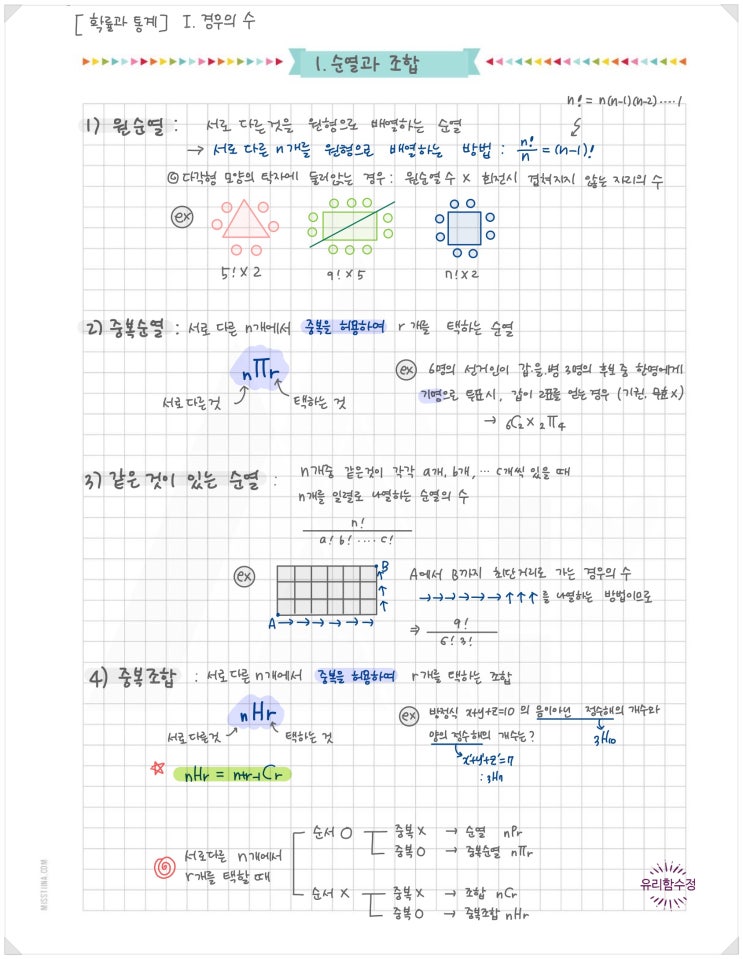 [확률과 통계] I. 경우의 수
1. 순열과 조합
n! = n(n-1)(n-2)····1
1) 원순열 : 서로 다른것을 원형으로 배열하는 순열
→ 서로 다른 n개를 원형으로 배열하는 방법 : n!/n = (n-1)!
◎ 다각형 모양의 탁자에 둘러앉는 경우 : 원순열 수 × 회전시 겹쳐지지 않는 자리의 수
ex
5! × 2 9! × 5 n! × 2
2) 중복순열 : 서로 다른 n개에서 중복을 허용하여 r개를 택하는 순열
nΠr
서로다른것 택하는 것
ex 6명의 선거인이 갑.을.병 3명의 후보 중 한명에게
기명으로 투표시, 갑이 2표를 얻는경우 (기권, 무효 x)
→ 6C2 × 2Π4
3) 같은 것이 있는 순열 : n개중 같은것이 각각 a개, b개, ··· c개씩 있을 때
n개를 일렬로 나열하는 순열의 수
n!
a! b! ···· c!
ex B A에서 B까지 최단거리로 가는 경우의 수
→→→→→→↑↑↑를 나열하는 방법이므로
A→→→→→→ ⇒ 9!
6! 3!
4) 중복조합 : 서로다른 n개에서 중복을 허용하여 r개를 택하는 조합
nHr
서로 다른것 택하는 것
ex 방정식 x+y+z=10 의 음이아닌 정수해의 개수와
양의 정수해의 개수는?
3H10
x'+y'+z'=7
: 3H7
☆ nHr = n+r-1Cr
서로다른 n개에서
r개를 택할 때
순서 O 중복 X → 순열 nPr
중복 O → 중복순열 nΠr
순서 X 중복 X → 조합 nCr
중복 O → 중복조합 nHr
MISSTIINA.COM
유리함수정